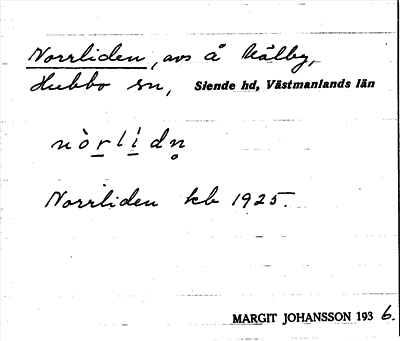 Norrliden, avs å Målby,
Hubbo sn, Siende hd, Västmanlands län
nòrlìdn̥
Norrliden kb 1925.
MARGIT JOHANSSON 193 6.